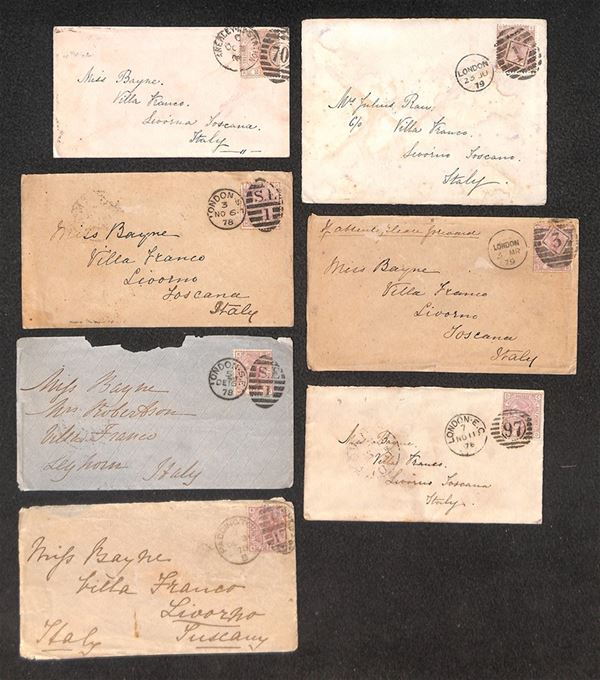 70
Miss Bayne.
Villa Franco.
Livorno Toscana.
Italy.
LONDON
79
Mr Julius Rau,
c/o Villa Franco.
Livorno Toscano.
Italy.
LONDON S.E.
3
NO 6
78
S.E.
1
Miss Bayne
Villa Franco
Livorno
Toscana
Italy
If absent, please forward
LONDON
MR
79
3
Miss Bayne
Villa Franco
Livorno
Toscana
Italy
LONDON S.E.
DE
78
S.E.
1
Miss Bayne
Mrs Robertson
Villa Franco
Leghorn
Italy
LONDON-E.C.
7
NO 11
78
97
Miss Bayne,
Villa Franco.
Livorno Toscana
Italy.
PADDINGTON
Miss Bayne
Villa Franco
Livorno
Italy Tuscany